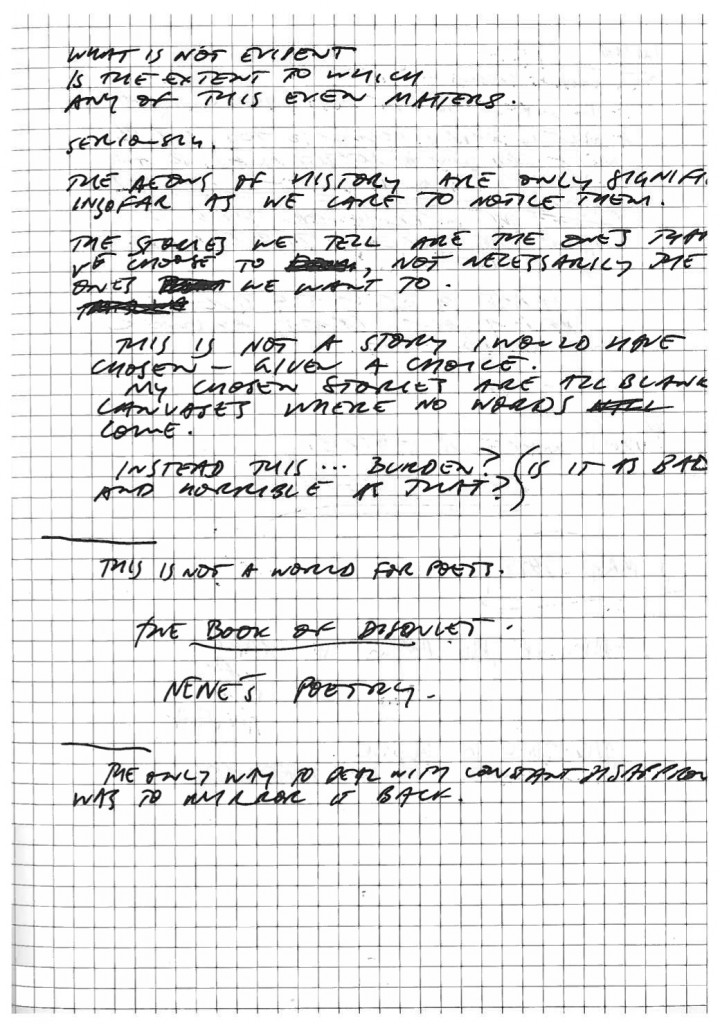 WHAT IS NOT EVIDENT
IS THE EXTENT TO WHICH
ANY OF THIS EVEN MATTERS.
SERIOUSLY.
THE AEONS OF HISTORY ARE ONLY SIGNIFI
INSOFAR AS WE CARE TO NOTICE THEM.
THE STORIES WE TELL ARE THE ONES THA
WE CHOOSE TO , NOT NECESSARILY THE
ONES WE WANT TO.
THIS IS NOT A STORY I WOULD HAVE
CHOSEN – GIVEN A CHOICE.
MY CHOSEN STORIES ARE ALL BLANK
CANVASES WHERE NO WORDS WILL
COME.
INSTEAD THIS ... BURDEN? (IS IT AS BAD
AND HORRIBLE AS THAT?
THIS IS NOT A WORLD FOR POETS.
THE BOOK OF DISQUIET.
NENE'S POETRY.
THE ONLY WAY TO DEAL WITH CONSTANT DISAPPROV
WAS TO MIRROR IT BACK.